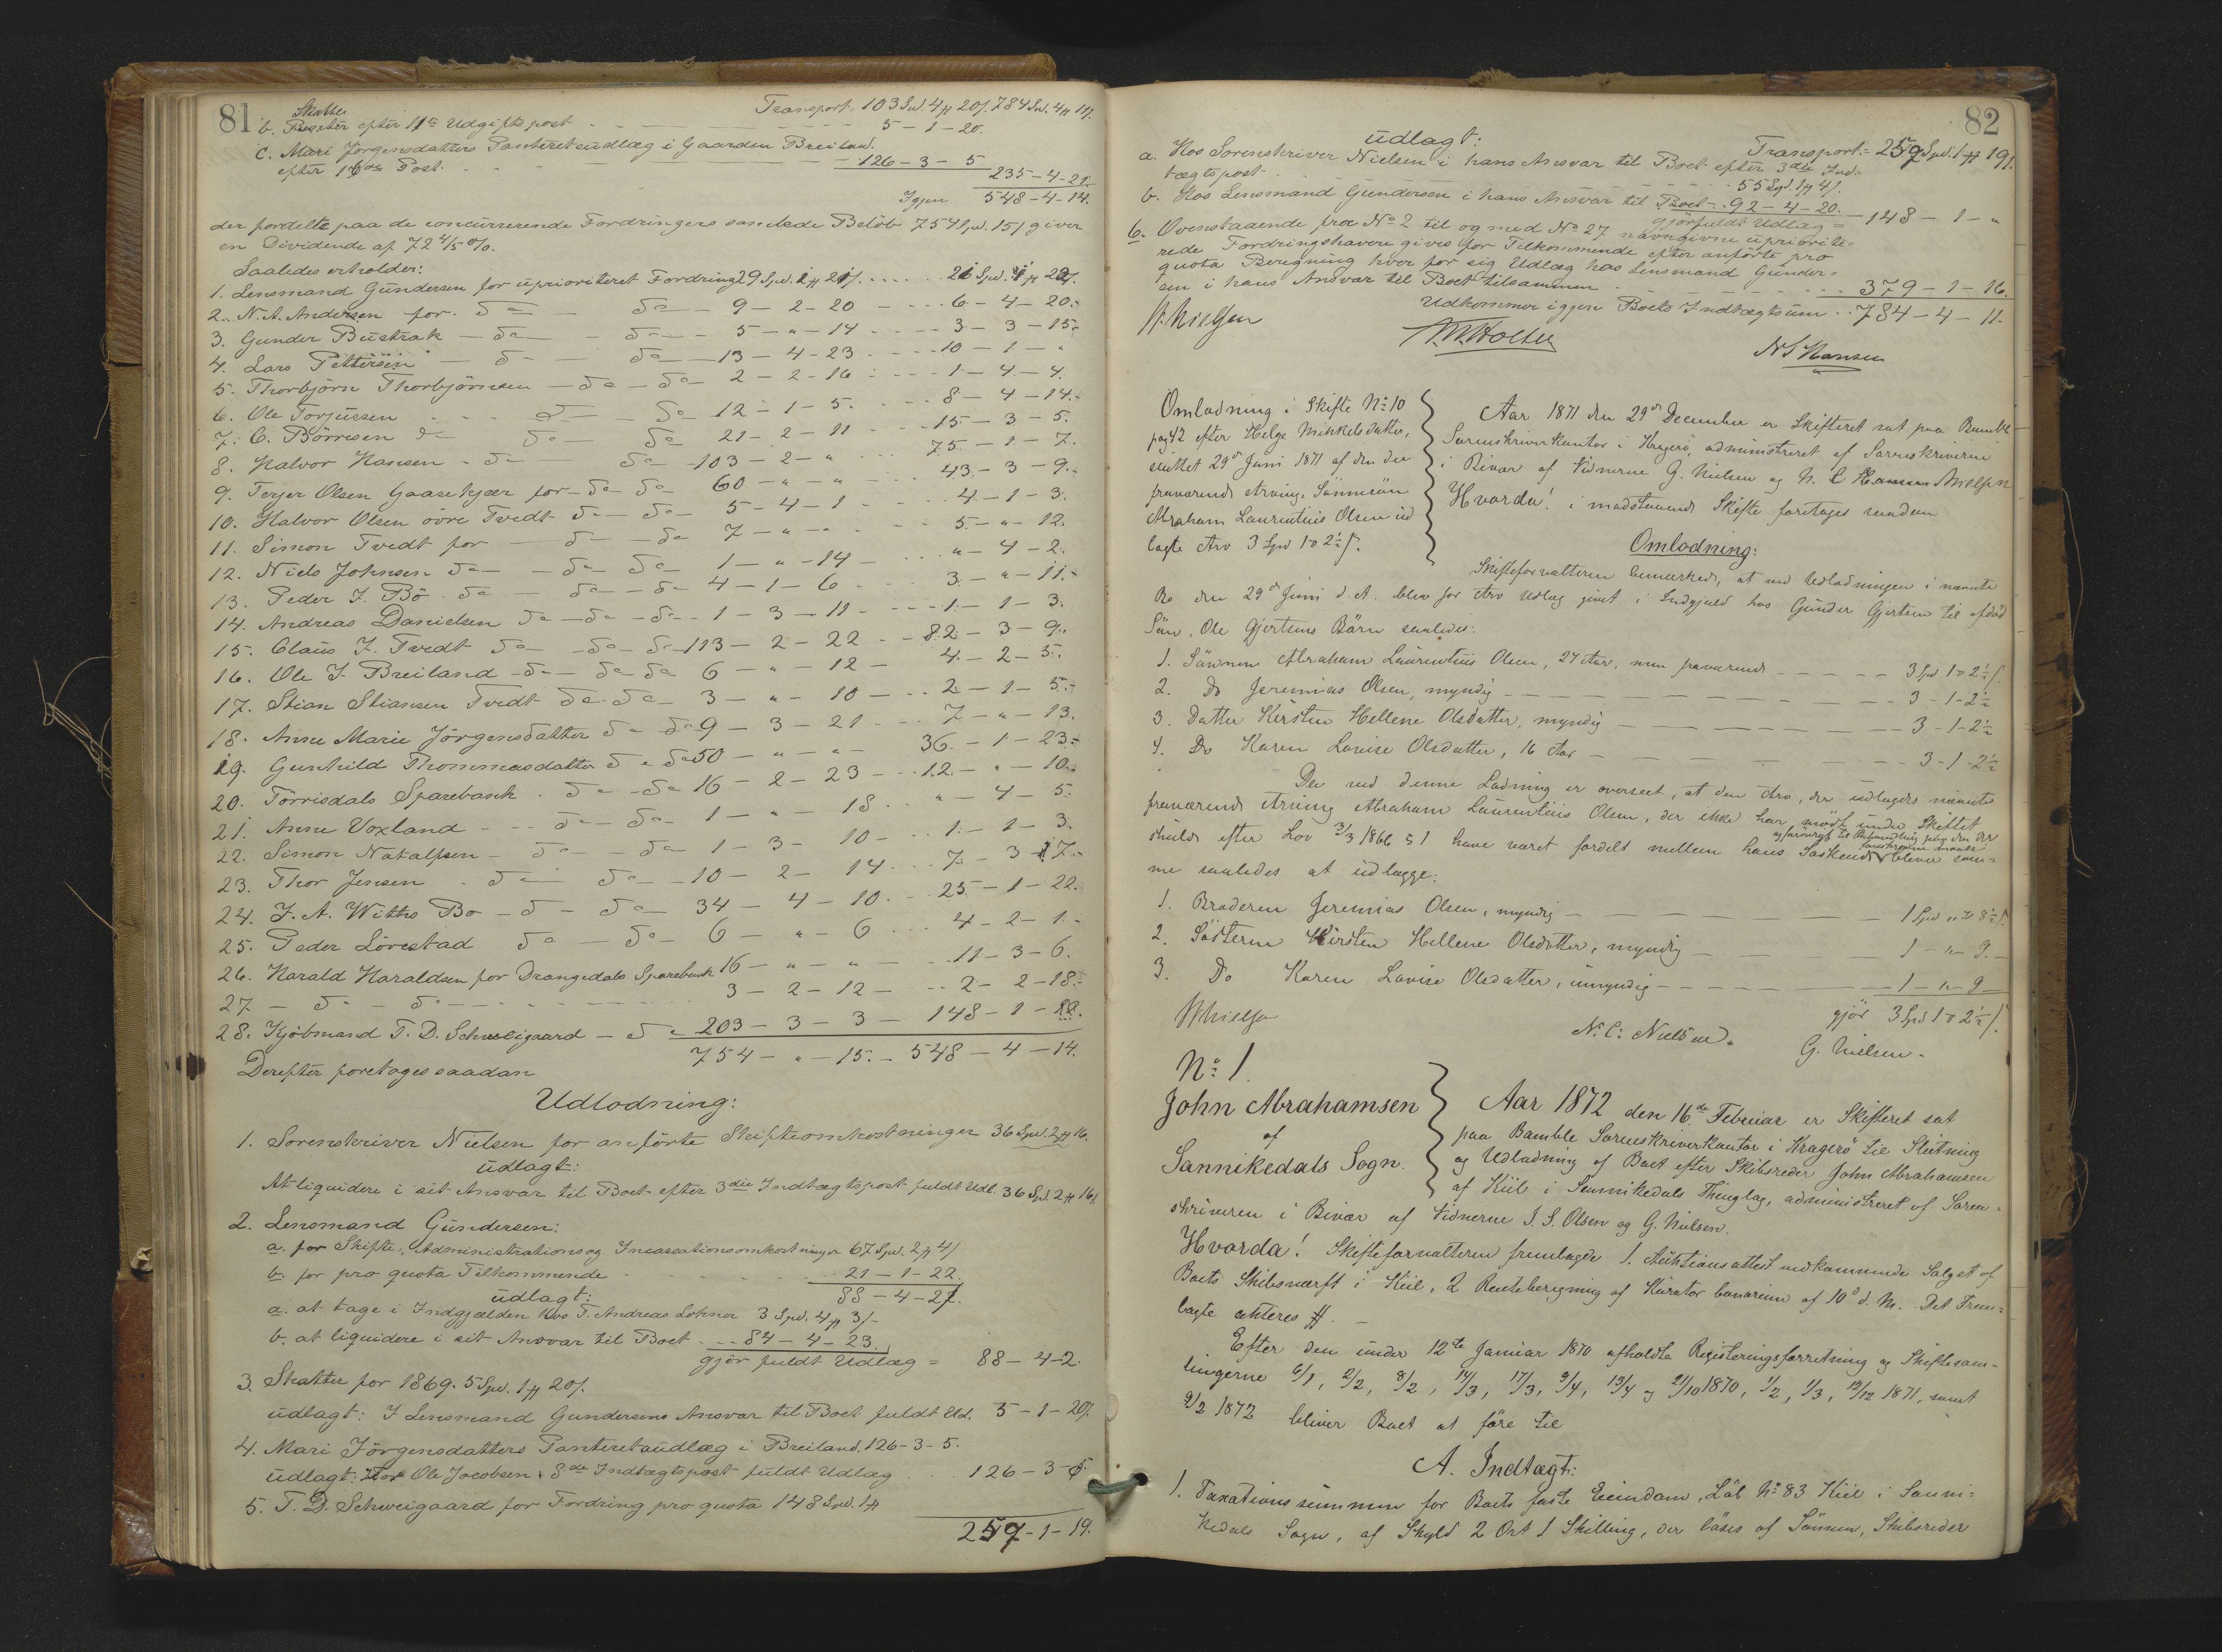 81
Transport. 103 Spd. 4 # 20 /. 784 Spd. 4 # 11 /.
b. Skatter efter 11te Udgiftspost - - - 5 - 1 - 20.
c. Mari Jörgensdatters Panteretsudlæg i Gaarden Breiland.
efter 16de Post. - - - 126 - 3 - 5
235 - 4 - 21.
Igjen 548 - 4 - 14.
der fordelte paa de concurrerende Fordringers samlede Belöb 754 Spd. 15 / giver
en Dividende af 72 4/5 %.
Saaledes erholder:
1. Lensmand Gundersen for uprioriteret Fordring 29 Spd. 2 # 21 /. . . . . 21 Spd. 1 # 22 /.
2. N. A. Andersen for. do - do - 9 - 2 - 20 - . . . 6 - 4 - 20.
3. Gunder Bustrak - do - do - 5 - " - 14 . . . . 3 - 3 - 15.
4. Lars Pettersen - do - do - 13 - 4 - 23 . . . . 10 - 1 - "
5. Thorbjörn Thorbjörnsen - do - do - 2 - 2 - 16 . . . . 1 - 4 - 4.
6. Ole Torjussen - - do - do 12 - 1 - 5. . . . 8 - 4 - 14.
7. C. Börresen do - do - do 21 - 2 - 11 . . . 15 - 3 - 5.
8. Halvor Hansen - do - do - 103 - 2 - " . . . 75 - 1 - 7.
9. Terjer Olsen Gaasekjær for - do - do 60 - " - " - . . . 43 - 3 - 9.
10. Halvor Olsen övre Tvedt do - do - 5 - 4 - 1 - . . 4 - 1 - 3.
11. Simon Tvedt for - do - do 7 - " - " . . . 5 - " - 12.
12. Niels Johnsen do - do - do - 1 - " - 14 - . . . " - 4 - 2.
13. Peder J. Bö. do - do - do - 4 - 1 - 6 . . . 3 - " - 11.
14. Andreas Danielsen do - do - do - 1 - 3 - 11 - . . . 1 - 1 - 3.
15. Claus J. Tvedt do - do - do - 113 - 2 - 22 . . 82 - 3 - 9.
16. Ole J. Breiland - do - do do 6 - " - 12 - 4 - 2 - 5.
17. Stian Stiansen Tvedt do - do - 3 - " - 10 - . . 2 - 1 - 5.
18. Anne Marie Jörgensdatter do - do 9 - 3 - 21 . . . 7 - " - 13.
19. Gunhild Thommasdatter do - do 50 - " - " - 36 - 1 - 23.
20. Törrisdals Sparebank . do - do 16 - 2 - 23 - . . 12 - " - 10.
21. Anne Voxland - - do - do - 1 - " - 18 . . " - 4 - 5.
22. Simon Natalpsen - do - do 1 - 3 - 10 - . . 1 - 1 - 3.
23. Thor Jensen - do - do - 10 - 2 - 14 . . 7 - 3 - 17.
24. J. A. Withs Bo - do - do - 34 - 4 - 10 . . 25 - 1 - 22.
25. Peder Lövestad do - do - 6 - " - 6 . . . 4 - 2 - 1.
26. Harald Haraldsen for Drangedals Sparebank 16 - " - " - . . 11 - 3 - 6.
27. - do - do - . . . - 3 - 2 - 12 - . . 2 - 2 - 18.
28. Kjöbmand T. D. Schweigaard - do 203 - 3 - 3 - 148 - 1 - 18.
754 - " - 15. - 548 - 4 - 14.
Derefter foretages saadan
Udlodning:
1. Sorenskriver Nielsen for anförte Skifteomkostninger 36 Spd. 2 # 16.
udlagt:
At liquidere i sit Ansvar til Boet efter 3die Indtægtspost fuldt Udl. 36 Spd. 2 # 16 /.
2. Lensmand Gundersen:
a. for Skifte-, Administrations og Incassationsomkostninger 67 Spd. 2 # 4 /
b. for pro quota Tilkommende . . . 21 - 1 - 22.
88 - 4 - 2.
udlagt:
a. at tage i Indgjælden hos T. Andreas Lohner 3 Spd. 4 # 3 / -
b. at liquidere i sit Ansvar til Boet . - - 84 - 4 - 23.
gjör fuldt Udlæg = 88 - 4 - 2.
3. Skatter for 1869. 5 Spd. 1 # 20 /.
udlagt: I Lensmand Gundersens Ansvar til Boet fuldt Ud. 5 - 1 - 20 /.
4. Mari Jörgensdatters Panteretsudlæg i Breiland. 126 - 3 - 5.
udlagt: Hos Ole Jacobsen 8de Indtægtspost fuldt Udlæg . . . 126 - 3 - 5.
5. T. D. Schweigaard for Fordring pro quota 148 Spd. 1 #
257 - 1 - 19.
82
udlagt:
Transport = 257 Spd. 1 # 19 /.
a. Hos Sorenskriver Nielsen i hans Ansvar til Boet efter 3die Ind-
tægtspost - - - 55 Spd. 1 # 4 /.
b. Hos Lensmand Gundersen i hans Ansvar til Boet - . 92 - 4 - 20.
gjörfuldt Udlæg = - 148 - 1 - "
6. Ovenstaaende fra No 2 til og med No 27 navngivne upriorite-
rede Fordringshavere gives for Tilkommende efter anförte pro
quota Beregning hver for sig Udlæg hos Lensmand Gunder-
sen i hans Ansvar til Boet tilsammen . . . 379 - 1 - 16.
Udkommer igjen Boets Indtægtsum . . 784 - 4 - 11.
Nielsen
Holter
N S Hansen
Omlodning i Skifte No 10
pag 42 efter Helge Mikkelsdatter,
sluttet 29de Juni 1871 af den der
fraværende Arving, Sönnesön
Abraham Laurentius Olsen ud
lagte Arv 3 Spd 1 # 2 1/2 /.
Aar 1871 den 29de December er Skifteret sat paa Bamble
Sorenskriverkontor i Kragerö, administreret af Sorenskriveren
i Bivær af Vidnerne G. Nielsen og N. C Nielsen
Hvorda! i modstaaende Skifte foretages saadan
Omlodning:
Skifteforvalteren bemærkede, at ved Udlodningen i nævnte
Bo den 29de Juni d. A. blev for Arv Udlæg givet i Indgjæld hos Gunder Gjertsen til afdöd
Sön, Ole Gjertsens Börn saaledes:
1. Sönnen Abraham Laurentius Olsen, 27 Aar, men fraværende - - - 3 Spd 1 # 2 1/2 /.
2. Do Jeremias Olsen, myndig - - - 3 - 1 - 2 1/2
3. Datter Kirsten Hellene Olsdatter, myndig - - - 3 - 1 - 2 1/2
4. Do Karen Lovise Olsdatter, 16 Aar - - - 3 - 1 - 2 1/2
Der ved denne Lodning er overseet, at den Arv, der udlagdes nævnte
fraværende Arving Abraham Laurentius Olsen, der ikke har mödt under Skiftet
skulde efter Lov 3/3 1866 § 1 have været fordelt mellem hans Södskende bliver sam-
me saaledes at udlægge:
1. Broderen Jeremias Olsen, myndig - - - 1 Spd " # 8 1/2 /.
2. Sösteren Kirsten Hellene Olsdatter, myndig - - - 1 - " - 9. -
3. Do Karen Lovise Olsdatter, umyndig - - - 1 - " - 9 -
gjör 3 Spd 1 # 2 1/2 /.
Nielsen
N. C. Nielsen.
G. Nielsen.
No 1.
John Abrahamsen
af
Sannikedals Sogn.
Aar 1872 den 16de Februar er Skifteret sat
paa Bamble Sorenskriverkontor i Kragerö til Slutning
og Udlodning af Boet efter Skibsreder John Abrahamsen
af Kiil i Sannikedals Thinglag, administreret af Soren-
skriveren i Bivær af Vidnerne J. S. Olsen og G. Nielsen.
Hvorda! Skifteforvalteren fremlagde 1. Auktionsattest vedkommende Salget af
Boets Skibsværft i Kiil, 2 Renteberegning af Kurator bonorum af 10de d. M. Det Frem-
lagte akteres #. -
Efter den under 12te Januar 1870 afholdte Registreringsforretning og Skiftesam-
lingerne 6/1, 2/2, 8/2, 14/3, 17/3, 9/4, 13/4 og 21/10 1870, 1/2, 1/3, 12/12 1871, samt
9/2 1872 bliver Boet at före til
A. Indtægt:
1. Taxationssummen for Boets faste Eiendom, Löb No 83 Kiil i Sanni-
kedals Sogn, af Skyld 2 Ort 1 Skilling, der löses af Sönnen, Skibsreder